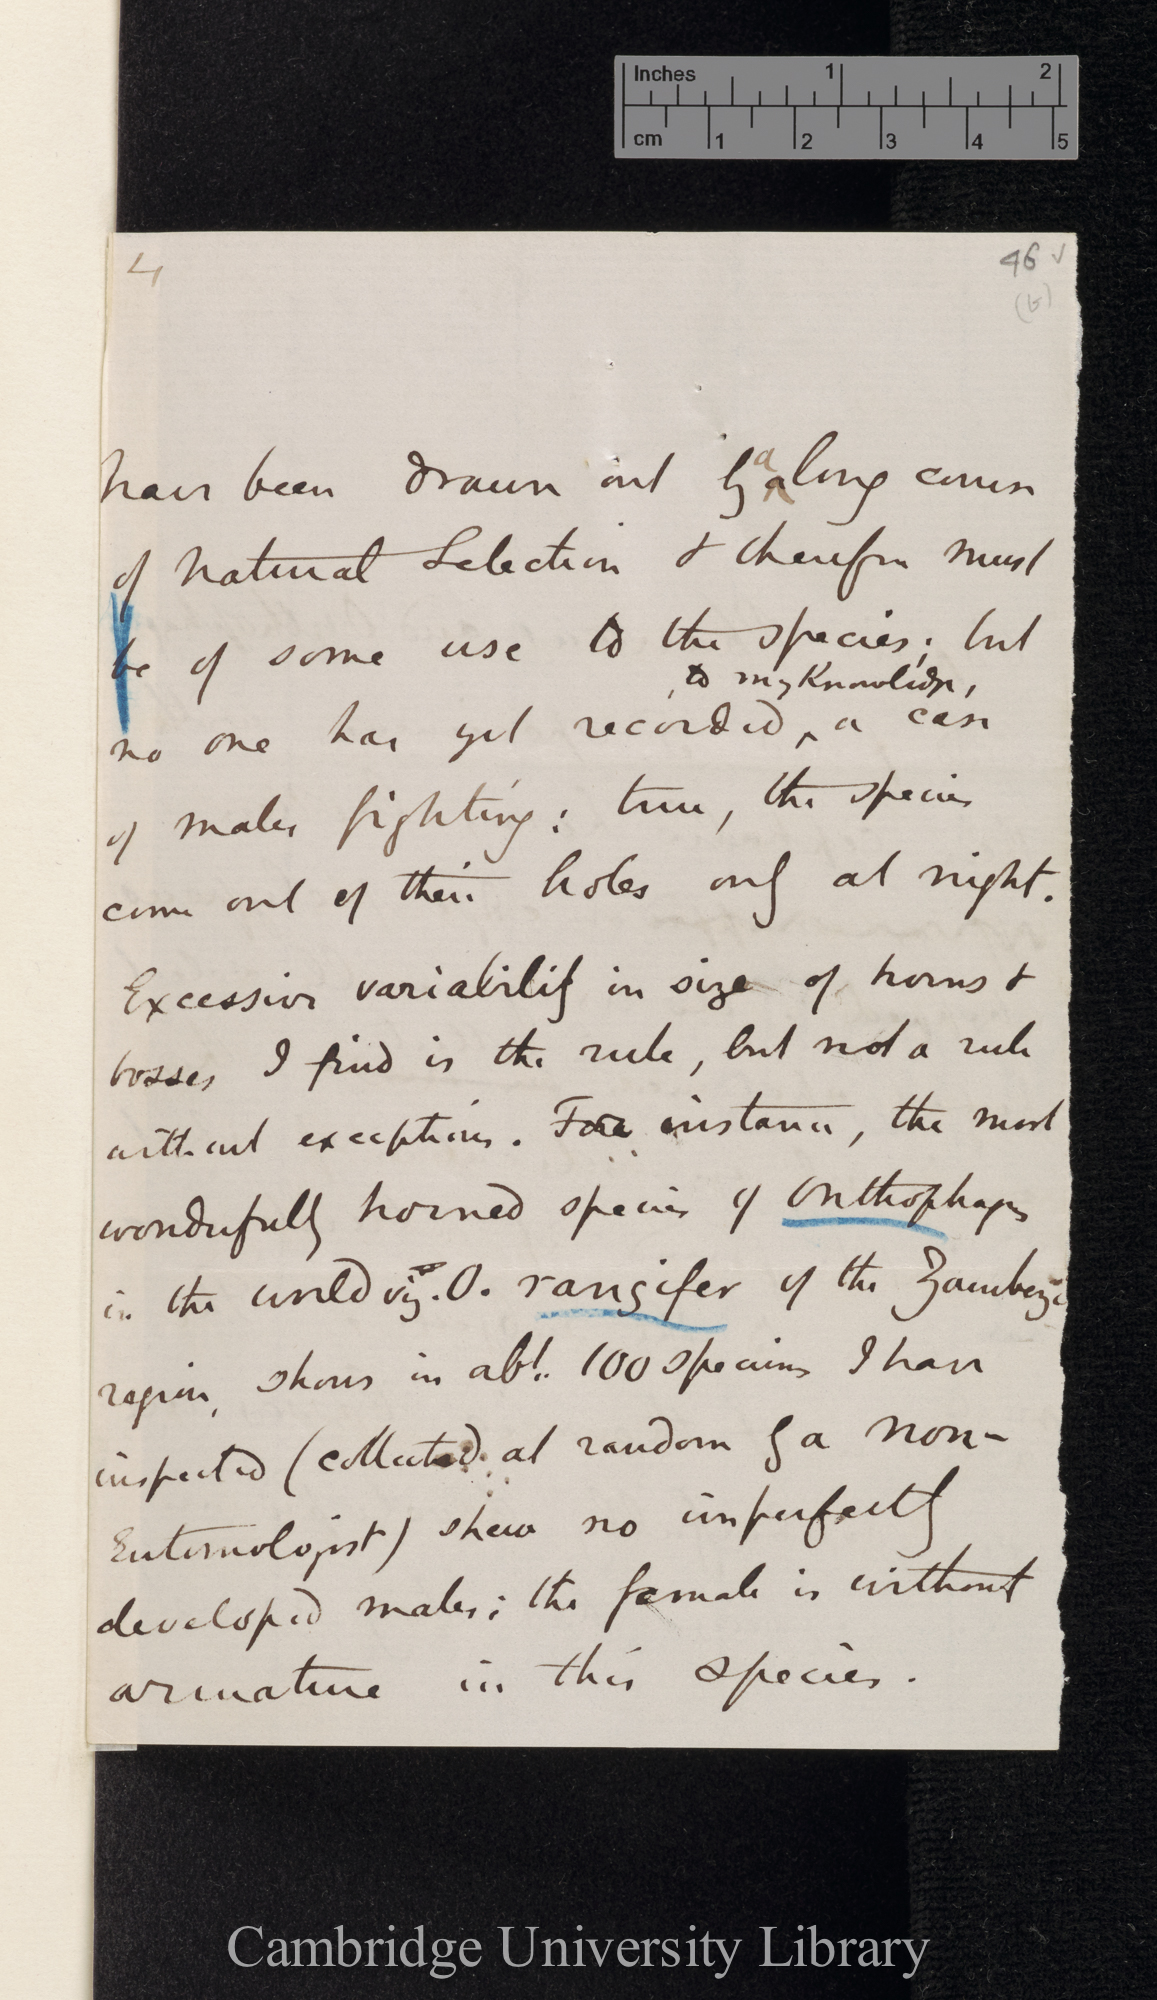 Inches 1 2
cm 1 2 3 4 5
4
46 v
(b)
have been drawn out by a long course
of Natural Selection & therefore must
be of some use to the species; but
to my Knowledge,
no one has yet recorded, a case
of males fighting: true, the species
come out of their holes only at night.
Excessive variability in size of horns &
bosses I find is the rule, but not a rule
without exceptions. For instance, the most
wonderfully horned species of Onthophagus
in the world viz. O. rangifer of the Zambezi
region, shows in abt. 100 specimens I have
inspected (collected at random by a non-
Entomologist) shew no imperfectly
developed males; the female is without
armature in this species.
Cambridge University Library